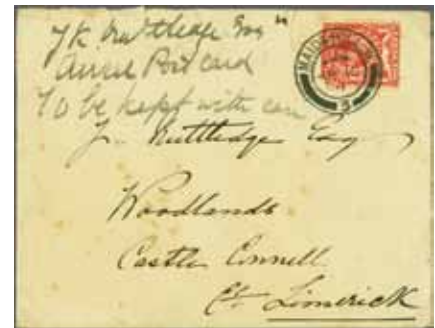 J K Nuttledge Esq
Post card
To be kept with care
J. Nuttledge Esq
Woodlands
Castle Connell
Co Limerick
MAIDENHEAD